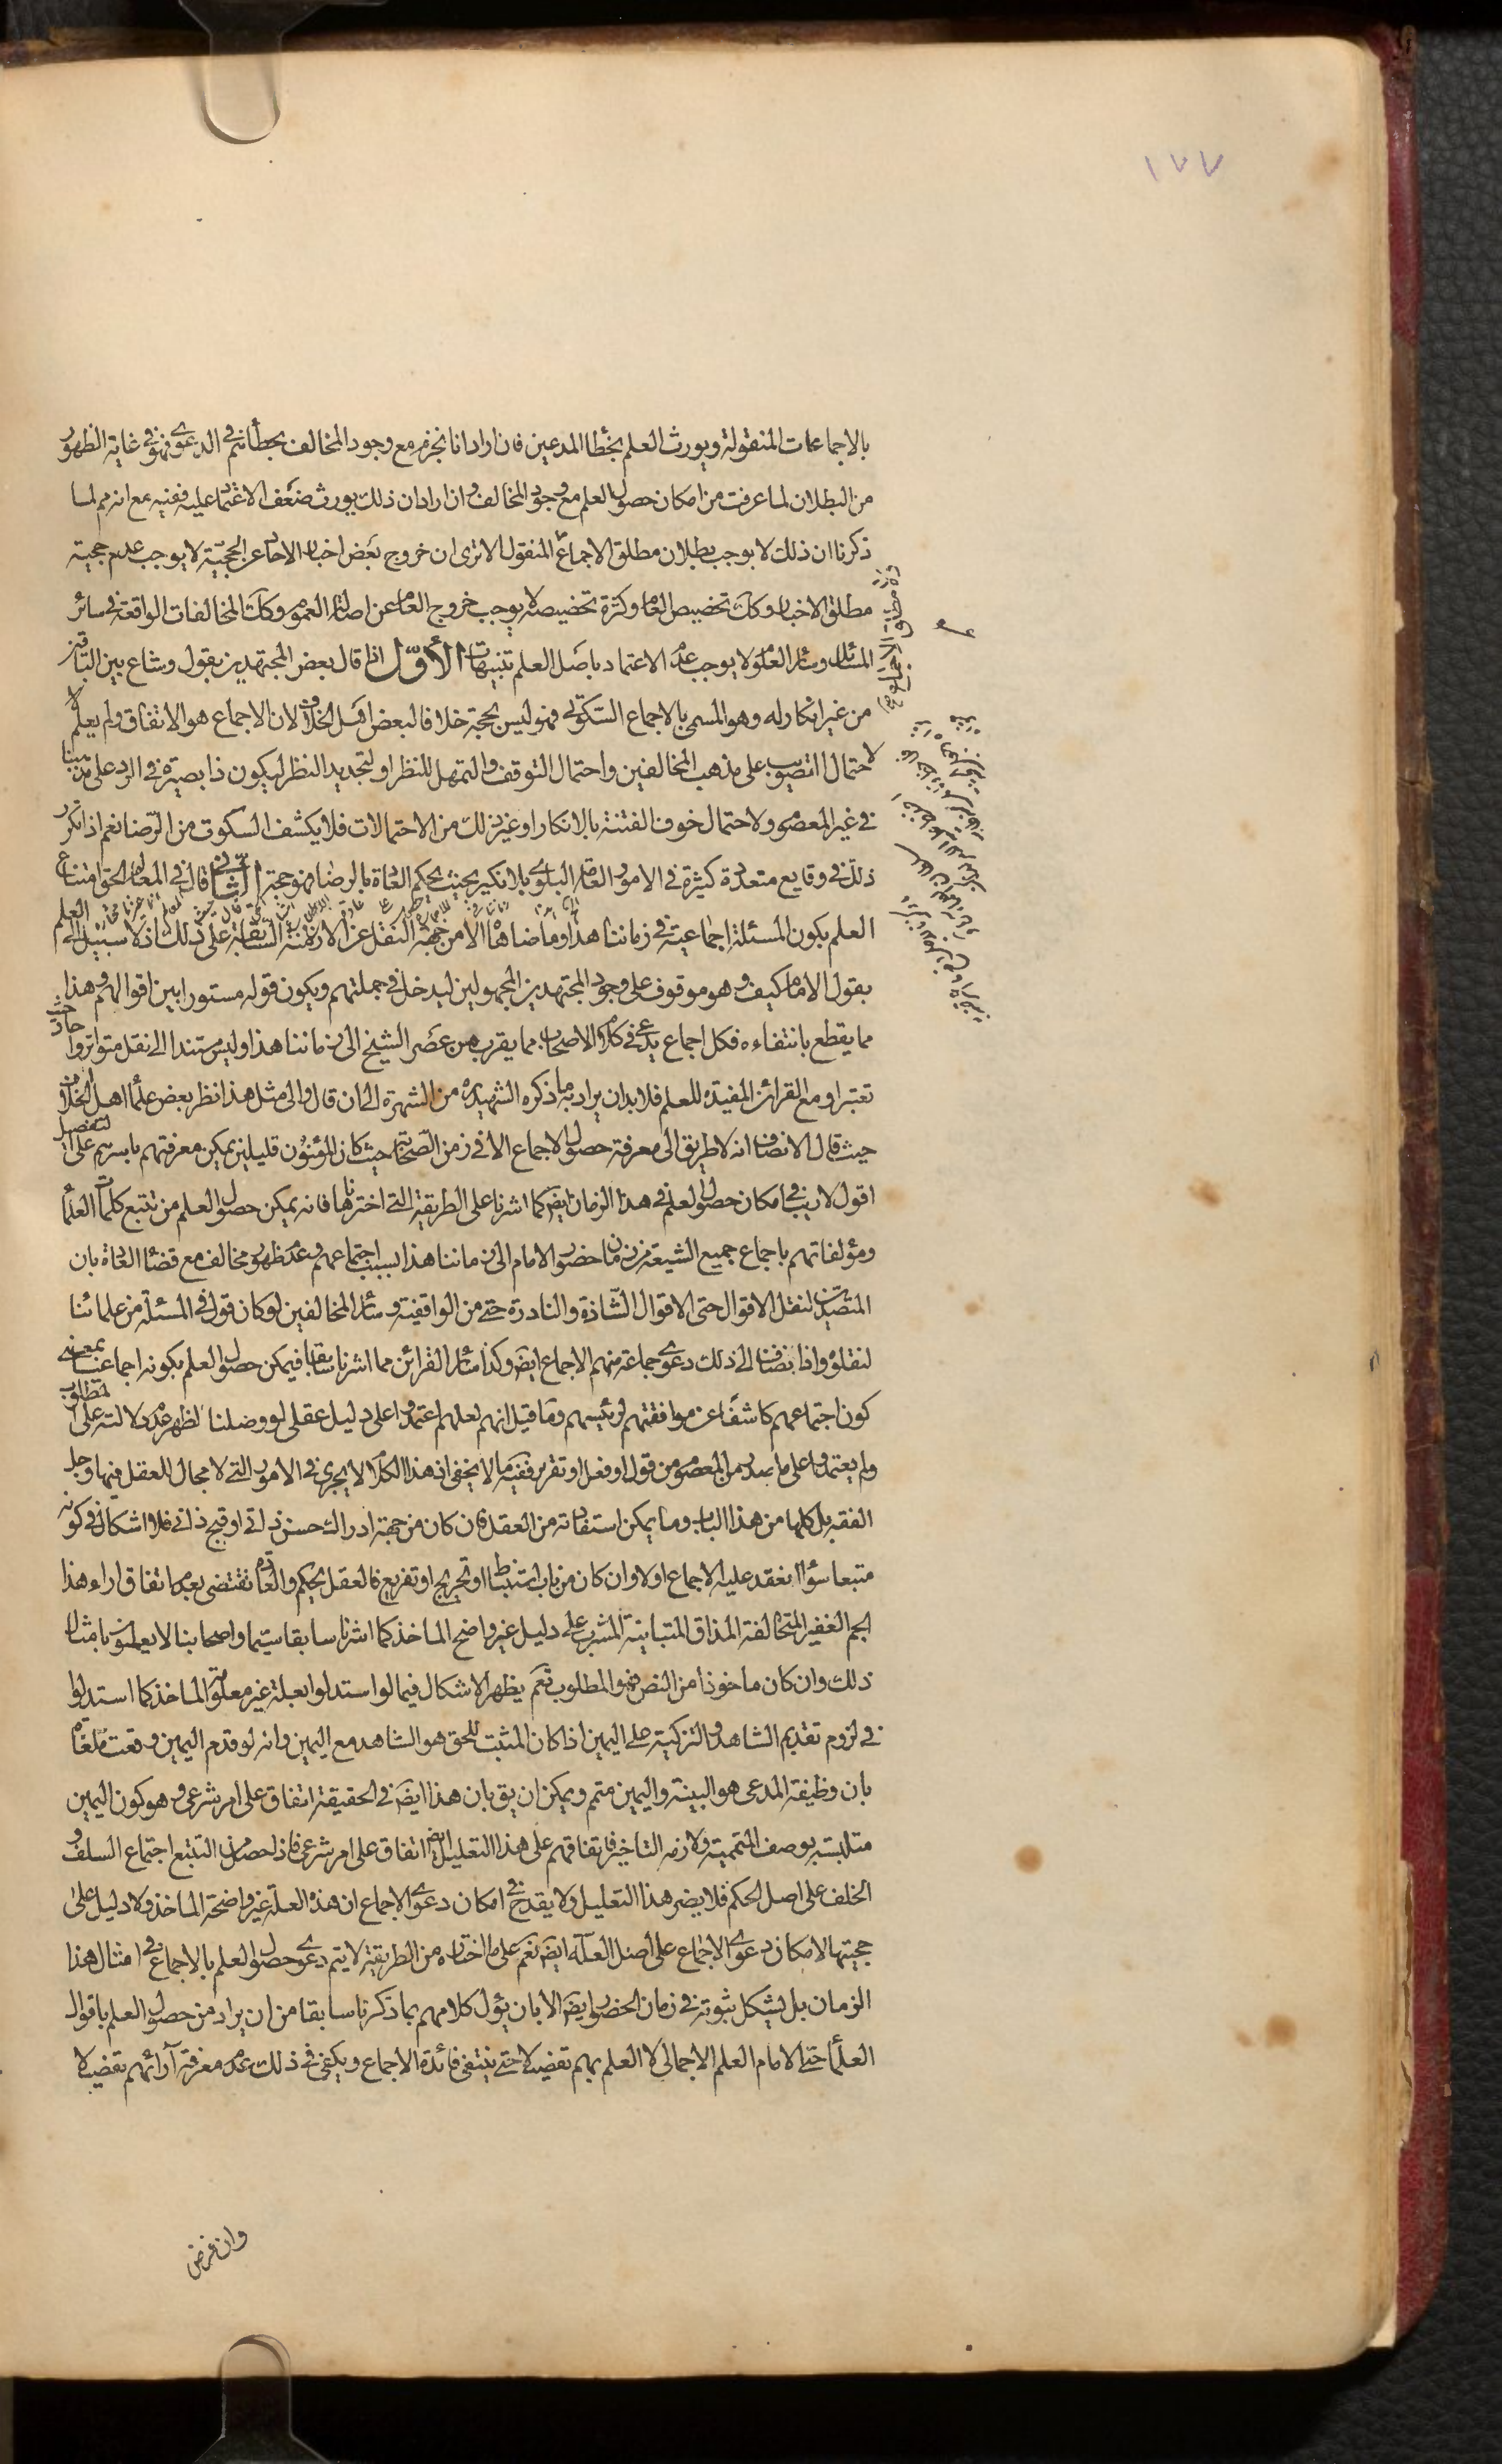 ١٧٧
بالاجماعات المنقولة ويورث العلم بخطأ المدعين فان اراد انا نجزم مع وجود المخالف بخطأئهم في الدعوى فهو في غاية الظهور
من البطلان لما عرفت من امكان حصول العلم مع وجود المخالف وان اراد ان ذلك يورث ضعف الاعتماد عليه ففيه مع انه مم لما
ذكرنا ان ذلك لا يوجب بطلان مطلق الاجماع المنقول الا ترى ان خروج بعض اخبار الاحاد عن الحجية لا يوجب عدم حجية
مطلق الاخبار وكك تخصيص العام وكثرة تخصيصه لا يوجب خروج العام عن اصالة العموم وكك المخالفات الواقعة في سائر
المسائل وسائر العلوم لا يوجب عدم الاعتماد باصل العلم تنبيهات الأوّل اذا قال بعض المجتهدين بقول وشاع بين الباقين
من غير انكار له وهو المسمى بالاجماع السكوتى فهو ليس بحجة خلافا لبعض اهل الخلاف لان الاجماع هو الاتفاق ولم يعلم
لاحتمال التصويب على مذهب المخالفين واحتمال التوقف والتمهل للنظر او لتجديد النظر ليكون ذا بصيرة في الرد على مذهبنا
في غير المعصوم ولاحتمال خوف الفتنة بالانكار او غير ذلك من الاحتمالات فلا يكشف السكوت من الرضا نعم اذا تكرر
ذلك في وقايع متعددة كثيرة في الامور العامة البلوى بلا نكير بحيث يحكم العادة بالرضا فهو حجة الثانى قال في المعالم الحق امتناع
العلم بكون المسئلة اجماعية في زماننا هذا وما ضاهاه الا من جهة النقل عن الازمنة السابقة على ذلك اذ لا سبيل الى العلم
بقول الامام كيف وهو موقوف على وجود المجتهدين المجهولين ليدخل في جملتهم ويكون قوله مستورا بين اقوالهم وهذا
مما يقطع بانتفاءه فكل اجماع يدعى في كلام الاصحاب مما يقرب من عصر الشيخ الى زماننا هذا وليس مستندا الى نقل متواتر او احاد حيث
تعتبر او مع القرائن المفيدة للعلم فلا بد ان يراد به ما ذكره الشهيد ره من الشهرة الى ان قال والى مثل هذا نظر بعض علماء اهل الخلاف
حيث قال الانصاف انه لا طريق الى معرفة حصول الاجماع الا في زمن الصحابة حيث كان المؤمنون قليلين يمكن معرفتهم باسرهم على التفصيل
اقول لا ريب في امكان حصول العلم في هذا الزمان ايضا كما اشرنا على الطريقة التي اخترناها فانه يمكن حصول العلم من تتبع كلمات العلماء
ومؤلفاتهم باجماع جميع الشيعة من زمان حضور الامام الى زماننا هذا بسبب اجتماعهم وعدم ظهور مخالف مع قضاء العادة بان
المتصدين لنقل الاقوال حتى الاقوال الشاذة والنادرة حتى من الواقفية وسائر المخالفين لو كان قول في المسئلة من علمائنا
لنقلوه واذا يضاف الى ذلك دعوى جماعة منهم الاجماع ايضا وكذا سائر القرائن مما اشرنا سابقا فيمكن حصول العلم بكونه اجماعيا بمعنى
كون اجتماعهم كاشفا عن موافقتهم لرئيسهم وما قيل انهم لعلهم اعتمدوا على دليل عقلى لو وصلنا لظهر عدم دلالته على المطلوب
ولم يعتمدوا على ما صدر من المعصوم من قول او فعل او تقرير ففيه ما لا يخفى اذ هذا الكلام لا يجرى في الامور التي لا مجال للعقل فيها وجل
الفقه بل كلها من هذا الباب وما يمكن استفادته من العقل فان كان من جهة ادراك حسن ذاتى او قبح ذاتى فلا اشكال في كونه
متبعا سواء انعقد عليه الاجماع او لا وان كان من باب استنباط او تخريج او تفريع فالعقل يحكم والعادة تقتضى بعدم اتفاق اراء هذا
الجم الغفير المتخالفة المذاق المتباينة المشرب على دليل غير واضح الماخذ كما اشرنا سابقا سيما واصحابنا لا يعملون بامثال
ذلك وان كان ماخوذا من النص فهو المطلوب نعم يظهر الاشكال فيما لو استدلوا بعلة غير معلومة الماخذ كما استدلوا
في لزوم تقديم الشاهد والتزكية على اليمين اذا كان المثبت للحق هو الشاهد مع اليمين وانه لو قدم اليمين وقعت ملغاة
بان وظيفة المدعى هو البينة واليمين متمم ويمكن ان يق بان هذا ايضا في الحقيقة اتفاق على امر شرعى وهو كون اليمين
متلبسة بوصف المتممية ولازمه التاخير فاتفاقهم على هذا التعليل ايضا اتفاق على امر شرعى فاذا حصل من التتبع اجتماع السلف و
الخلف على اصل الحكم فلا يضر هذا التعليل ولا يقدح في امكان دعوى الاجماع ان هذه العلة غير واضحة الماخذ ولا دليل على
حجيتها لامكان دعوى الاجماع على اصل العلة ايضا نعم على ما اختاره من الطريقة لا يتم دعوى حصول العلم بالاجماع في امثال هذا
الزمان بل يشكل ثبوته في زمان الحضور ايضا الا بان يؤل كلامهم بما ذكرنا سابقا من ان يراد من حصول العلم باقوال
العلماء حتى الامام العلم الاجمالى لا العلم بهم تفصيلا حتى ينتفى فائدة الاجماع ويكفى في ذلك عدم معرفة آرائهم تفصيلا
وان فرض